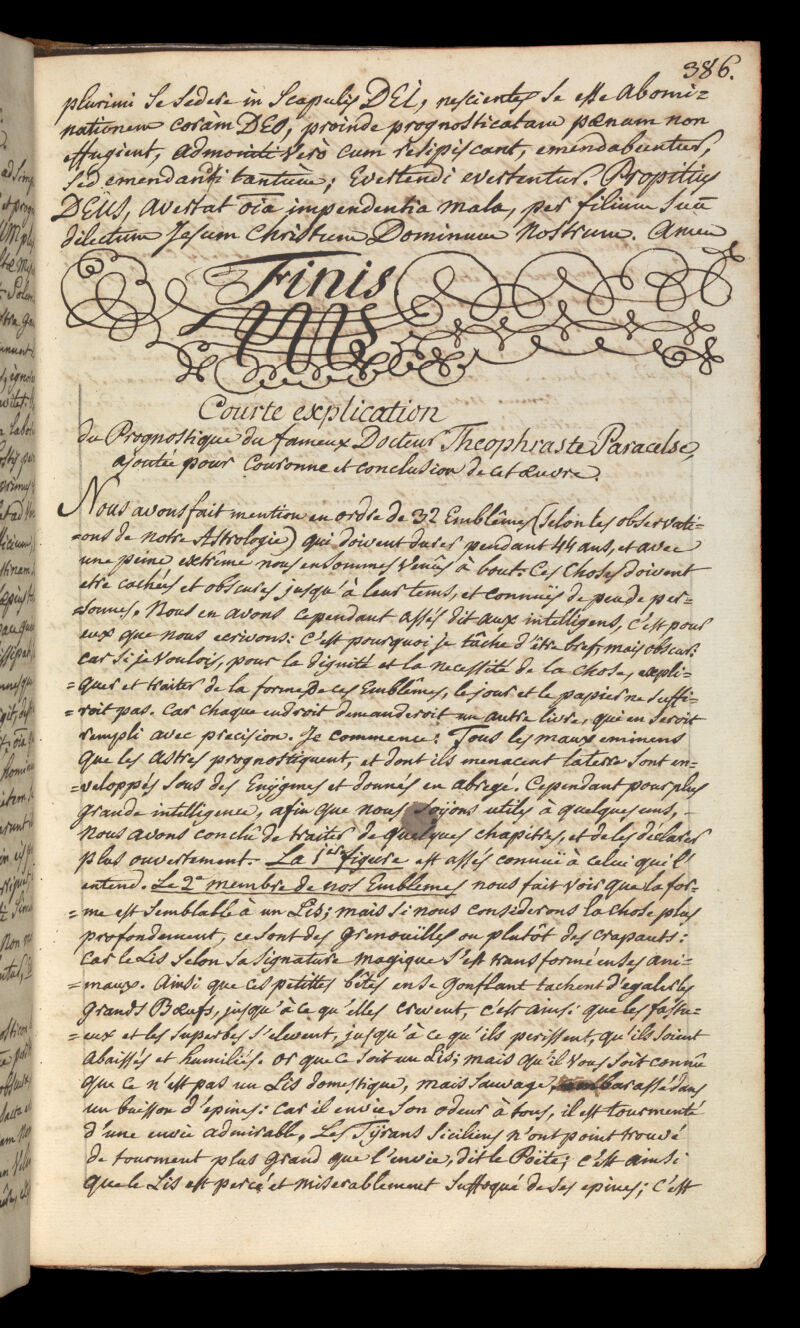 386.
plurimi se sedere in Scapulis DEI, nescientes se esse Abomi=
nationem coràm DEO, proinde prognosticatam pœnam non
effugient, admoniti verò cum resipiscant, emendabuntur,
sed emendandi tantùm; Evertendi evertentur. Propitius
DEUS, avertat oĩa impendentia mala, per filium suũ
dilectum Jesum Christum Dominum Nostrum. Amen
Finis
Courte explication
du Prognostique du fameux Docteur Theophraste Paracelse,
ajoutée pour Couronne et conclusion de cet œuvre.
Nous avons fait mention en ordre de 32 Emblêmes (selon les observati=
=ons de notre Astrologie) qui doivent durer pendant 44 ans, et avec
une peine extrême nous en sommes venûs à bout: Ces choses doivent
etre cachées et obscures jusqu'à leur tems, et connuës de peu de per=
=sonnes. Nous en avons cependant assés dit aux intelligens, c'est pour
eux que nous ecrivons: c'est pourquoi je tâche d'être bref, mais obscur:
car si je voulois, pour la dignité et la necessité de la chose, expli=
=quer et traiter de la forme de ces Emblêmes, le jour et le papier ne suffi=
=roit pas. Car chaque endroit demanderoit un autre livre, qui en seroit
rempli avec precision. Je commence: Tous les maux eminens
que les Astres prognostiquent, et dont ils menacent la terre sont en=
=veloppés sous des Enÿgmes et donnés en abregé. Cependant pour plus
grande intelligence, afin que nous soÿons utiles à quelques uns,
nous avons conclû de traiter de quelques chapitres, et de les declarer
plus ouvertement. La 1ere figure est assés connuë à celui qui l'
entend. Le 2e membre de nos Emblemes nous fait voir que la for=
=me est semblable à un Lis; mais si nous considerons la chose plus
profondement, ce sont des grenoüilles ou plutôt des crapauts:
car le Lis selon sa signature magique s'est transformé en ses ani=
=maux. Ainsi que ces petittes bêtes en se gonflant tachent d'egaler les
grands Bœufs, jusqu'à ce qu'elles crevent, c'est ainsi que les fastu=
=eux et les superbes s'elevent, jusqu'à ce qu'ils perissent, qu'ils soient
abaissés et humiliés. Or que ce soit un Lis; mais qu'il vous soit connû
que ce n'est pas un Lis domestique, mais sauvage, embarassé dans
un buisson d'epines: car il envie son odeur à tous, il est tourmenté
d'une envie admirable. Les Tÿrans siciliens n'ont point trouvé
de tourment plus grand que l'envie, dit le Poëte; c'est ainsi
que le Lis est percé et miserablement suffoqué de ses epines; c'est